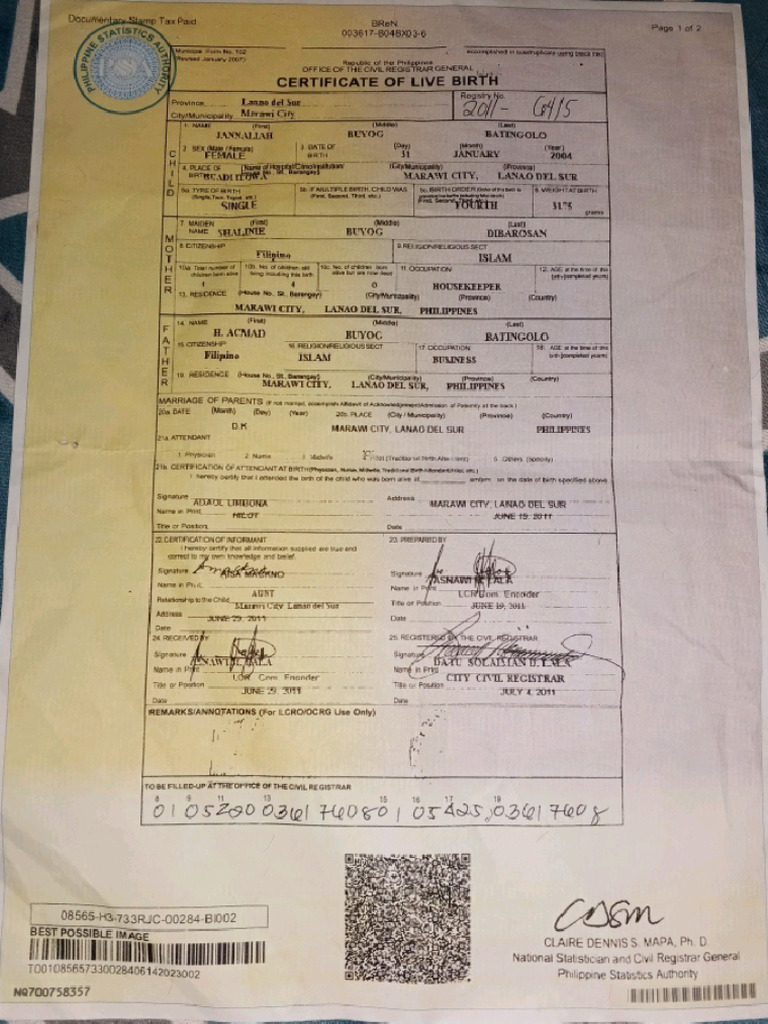 Documentary Stamp Tax Paid
BReN
003617-B04BX03-6
Page 1 of 2
PHILIPPINE STATISTICS AUTHORITY
Municipal Form No. 102
(Revised January 2007)
accomplished in quadruplicate using black ink
Republic of the Philippines
OFFICE OF THE CIVIL REGISTRAR GENERAL
CERTIFICATE OF LIVE BIRTH
Province Lanao del Sur
Registry No.
City/Municipality Marawi City
2011-
CHILD
1. NAME (First) (Middle) (Last)
JANNALIAH BUYOG BATINGOLO
2. SEX (Male / Female) 3. DATE OF BIRTH (Day) (Month) (Year)
FEMALE 31 JANUARY 2004
4. PLACE OF BIRTH (Name of Hospital/Clinic/Institution/ House No., St. Barangay) (City/Municipality) (Province)
MARAWI CITY, LANAO DEL SUR
5a. TYPE OF BIRTH (Single, Twin, Triplet, etc.) 5b. IF MULTIPLE BIRTH, CHILD WAS (First, Second, Third, etc.) 5c. BIRTH ORDER 6. WEIGHT AT BIRTH
SINGLE FOURTH 3175 grams
MOTHER
7. MAIDEN NAME (First) (Middle) (Last)
SHALINIE BUYOG DIBAROSAN
8. CITIZENSHIP 9. RELIGION/RELIGIOUS SECT
Filipino ISLAM
10a. Total number of children born alive 10b. No. of children still living including this birth 10c. No. of children born alive but are now dead 11. OCCUPATION 12. AGE at the time of this birth (completed years)
4 4 0 HOUSEKEEPER
13. RESIDENCE (House No., St. Barangay) (City/Municipality) (Province) (Country)
MARAWI CITY, LANAO DEL SUR, PHILIPPINES
FATHER
14. NAME (First) (Middle) (Last)
H. ACMAD BUYOG BATINGOLO
15. CITIZENSHIP 16. RELIGION/RELIGIOUS SECT 17. OCCUPATION 18. AGE at the time of this birth (completed years)
Filipino ISLAM BUSINESS
19. RESIDENCE (House No., St. Barangay) (City/Municipality) (Province) (Country)
MARAWI CITY, LANAO DEL SUR, PHILIPPINES
MARRIAGE OF PARENTS (If not married, accomplish Affidavit of Acknowledgement/Admission of Paternity at the back)
20a. DATE (Month) (Day) (Year) 20b. PLACE (City / Municipality) (Province) (Country)
D.K MARAWI CITY, LANAO DEL SUR PHILIPPINES
21a. ATTENDANT
1. Physician 2. Nurse 3. Midwife Hilot (Traditional Birth Attendant) 5. Others (Specify)
21b. CERTIFICATION OF ATTENDANT AT BIRTH (Physician, Nurse, Midwife, Traditional Birth Attendant/Hilot, etc.)
I hereby certify that I attended the birth of the child who was born alive at am/pm on the date of birth specified above
Signature Address
LIMBONA MARAWI CITY, LANAO DEL SUR
Name in Print JUNE 19, 2011
HILOT
Title or Position Date
22. CERTIFICATION OF INFORMANT
I hereby certify that all information supplied are true and correct to my own knowledge and belief.
Signature
Name in Print
Relationship to the Child AUNT
Address Marawi City, Lanao del Sur
JUNE 29, 2011
Date
23. PREPARED BY
Signature
Name in Print
LCR Com. Encoder
Title or Position JUNE 19, 2011
Date
24. RECEIVED BY
Signature
Name in Print
LCR Com. Encoder
Title or Position JUNE 29, 2011
Date
25. REGISTERED BY THE CIVIL REGISTRAR
Signature
DATU SOLAIMAN
Name in Print
CITY CIVIL REGISTRAR
Title or Position JULY 4, 2011
Date
REMARKS/ANNOTATIONS (For LCRO/OCRG Use Only)
TO BE FILLED-UP AT THE OFFICE OF THE CIVIL REGISTRAR
8 9 11 13 15 16 17 19
08565-H3-733RJC-00284-BI002
BEST POSSIBLE IMAGE
T00108565733002840614202 3002
NQ700758357
CLAIRE DENNIS S. MAPA, Ph. D.
National Statistician and Civil Registrar General
Philippine Statistics Authority